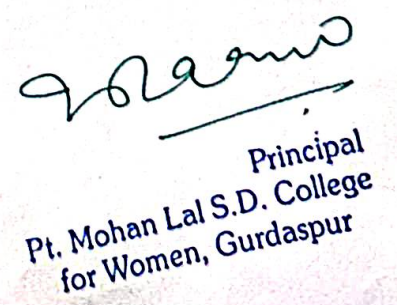 Principal
Pt. Mohan Lal S.D. College
for Women, Gurdaspur